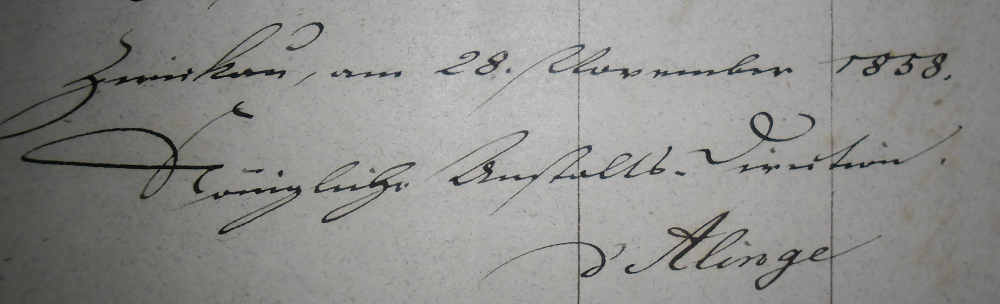 Zwickau, am 28. November 1858.
Königliche Anstalts-Direction.
d'Alinge